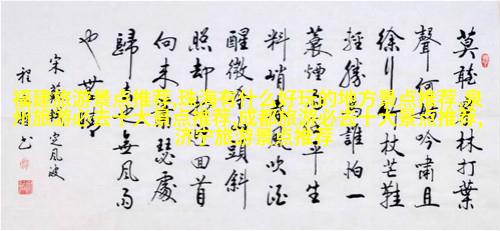 福建旅游景点推荐,珠海有什么好玩的地方景点推荐,泉
州旅游必去十大景点推荐,成都旅游必去十大景点推荐,
济宁旅游景点推荐
莫聽穿林打葉
聲何妨吟嘯且
徐行竹杖芒鞋
輕勝馬誰怕一
蓑煙雨任平生
料峭春風吹酒
醒微冷山頭斜
照却相迎回首
向来蕭瑟處
歸去也無風雨
也無晴
宋蘇軾定風波
程